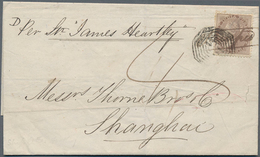 D
Per Str "James Hartley"
Messrs Thorne Bros & Co
Shanghai